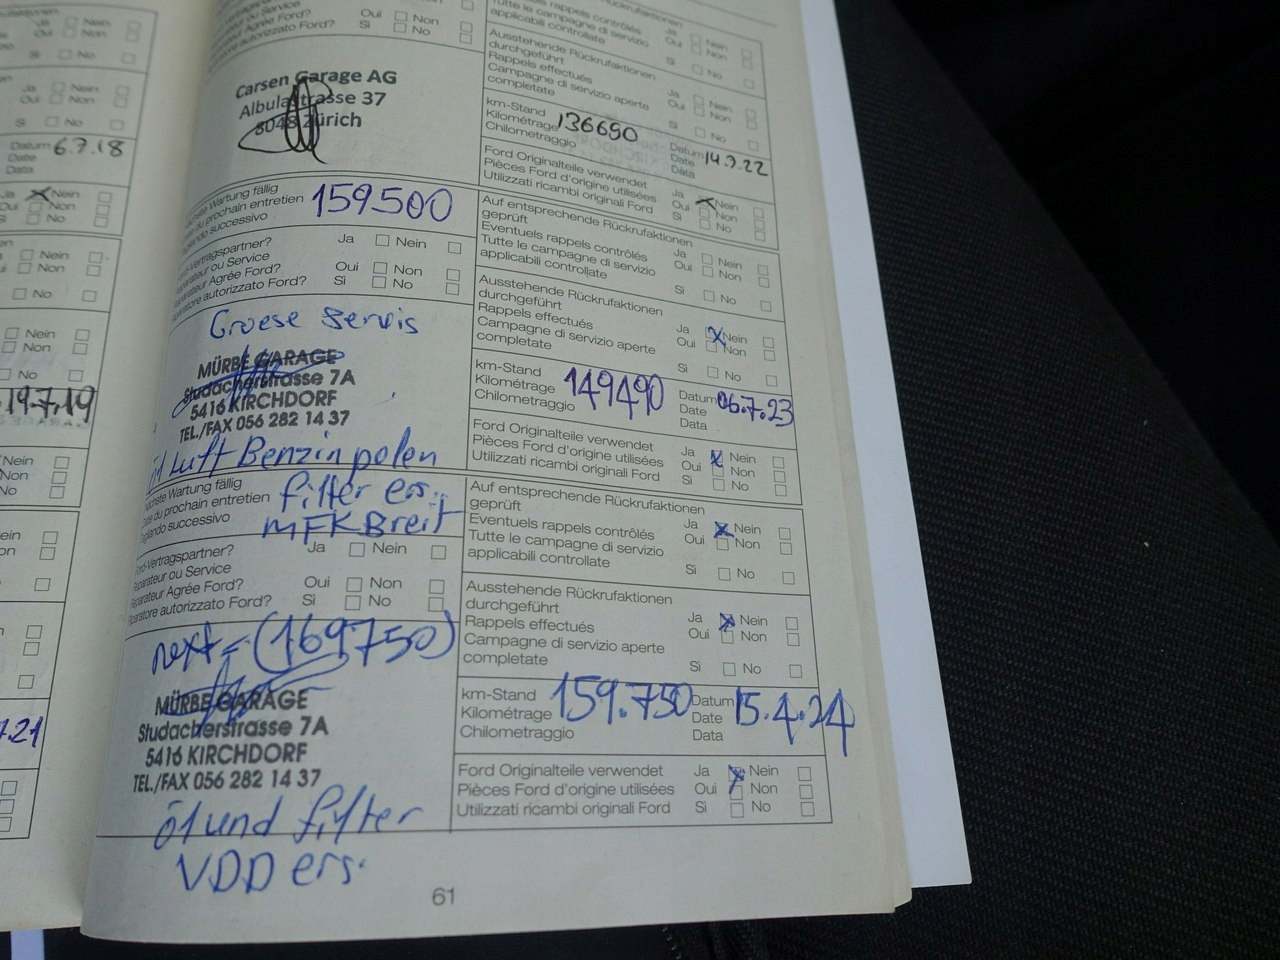 Nein
Oui Non
Si No
Ja Nein
Oui Non
Si No
Datum 6.7.18
Date
Data
Ja Nein
Oui Non
Si No
Nein
Non
No
Nein
Non
No
19.7.19
Nein
Non
No
.21
61
Oui Non
Si No
Carsen Garage AG
Albulastrasse 37
8048 Zürich
Eventuels rappels contrôlés
Tutte le campagne di servizio
applicabili controllate
Ja Nein
Oui Non
Si No
Ausstehende Rückrufaktionen
durchgeführt
Rappels effectués
Campagne di servizio aperte
completate
Ja Nein
Oui Non
Si No
km-Stand
Kilométrage 136690
Chilometraggio
Datum 14.7.22
Date
Data
Ford Originalteile verwendet
Pièces Ford d'origine utilisées
Utilizzati ricambi originali Ford
Ja Nein
Oui Non
Si No
Wartung fällig
du prochain entretien 159500
successivo
Vertragspartner? Ja Nein
ou Service
Agrée Ford? Oui Non
autorizzato Ford? Si No
Groese servis
MÜRBE GARAGE
Studacherstrasse 7A
5416 KIRCHDORF
TEL./FAX 056 282 14 37
Luft Benzin polen
filter ers.
MFK Breit
Auf entsprechende Rückrufaktionen
geprüft
Eventuels rappels contrôlés
Tutte le campagne di servizio
applicabili controllate
Ja Nein
Oui Non
Si No
Ausstehende Rückrufaktionen
durchgeführt
Rappels effectués
Campagne di servizio aperte
completate
Ja Nein
Oui Non
Si No
km-Stand
Kilométrage 149490
Chilometraggio
Datum 06.7.23
Date
Data
Ford Originalteile verwendet
Pièces Ford d'origine utilisées
Utilizzati ricambi originali Ford
Ja Nein
Oui Non
Si No
Wartung fällig
du prochain entretien
successivo
Vertragspartner? Ja Nein
ou Service
Agrée Ford? Oui Non
autorizzato Ford? Si No
next = (169750)
MÜRBE GARAGE
Studacherstrasse 7A
5416 KIRCHDORF
TEL./FAX 056 282 14 37
öl und filter
VDD ers.
Auf entsprechende Rückrufaktionen
geprüft
Eventuels rappels contrôlés
Tutte le campagne di servizio
applicabili controllate
Ja Nein
Oui Non
Si No
Ausstehende Rückrufaktionen
durchgeführt
Rappels effectués
Campagne di servizio aperte
completate
Ja Nein
Oui Non
Si No
km-Stand
Kilométrage 159.750
Chilometraggio
Datum 15.4.24
Date
Data
Ford Originalteile verwendet
Pièces Ford d'origine utilisées
Utilizzati ricambi originali Ford
Ja Nein
Oui Non
Si No